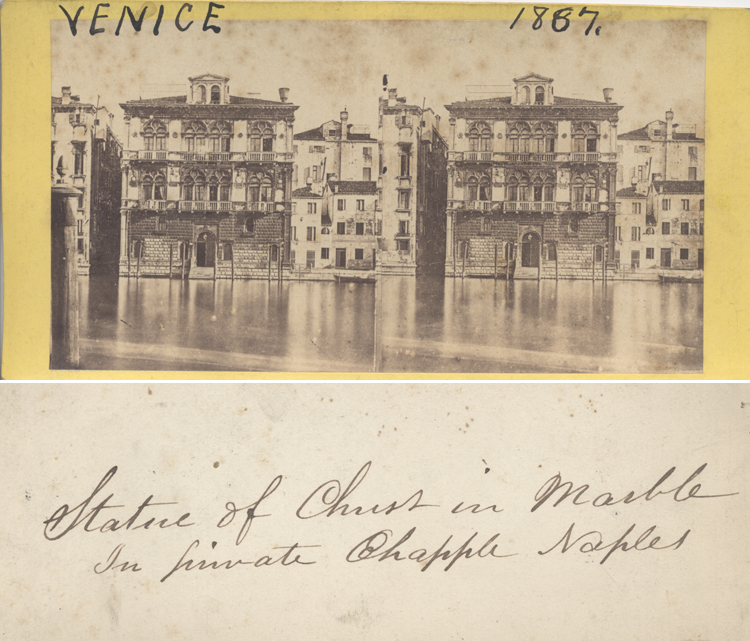 VENICE 1887.
Statue of Christ in Marble
In private Chapple Naples